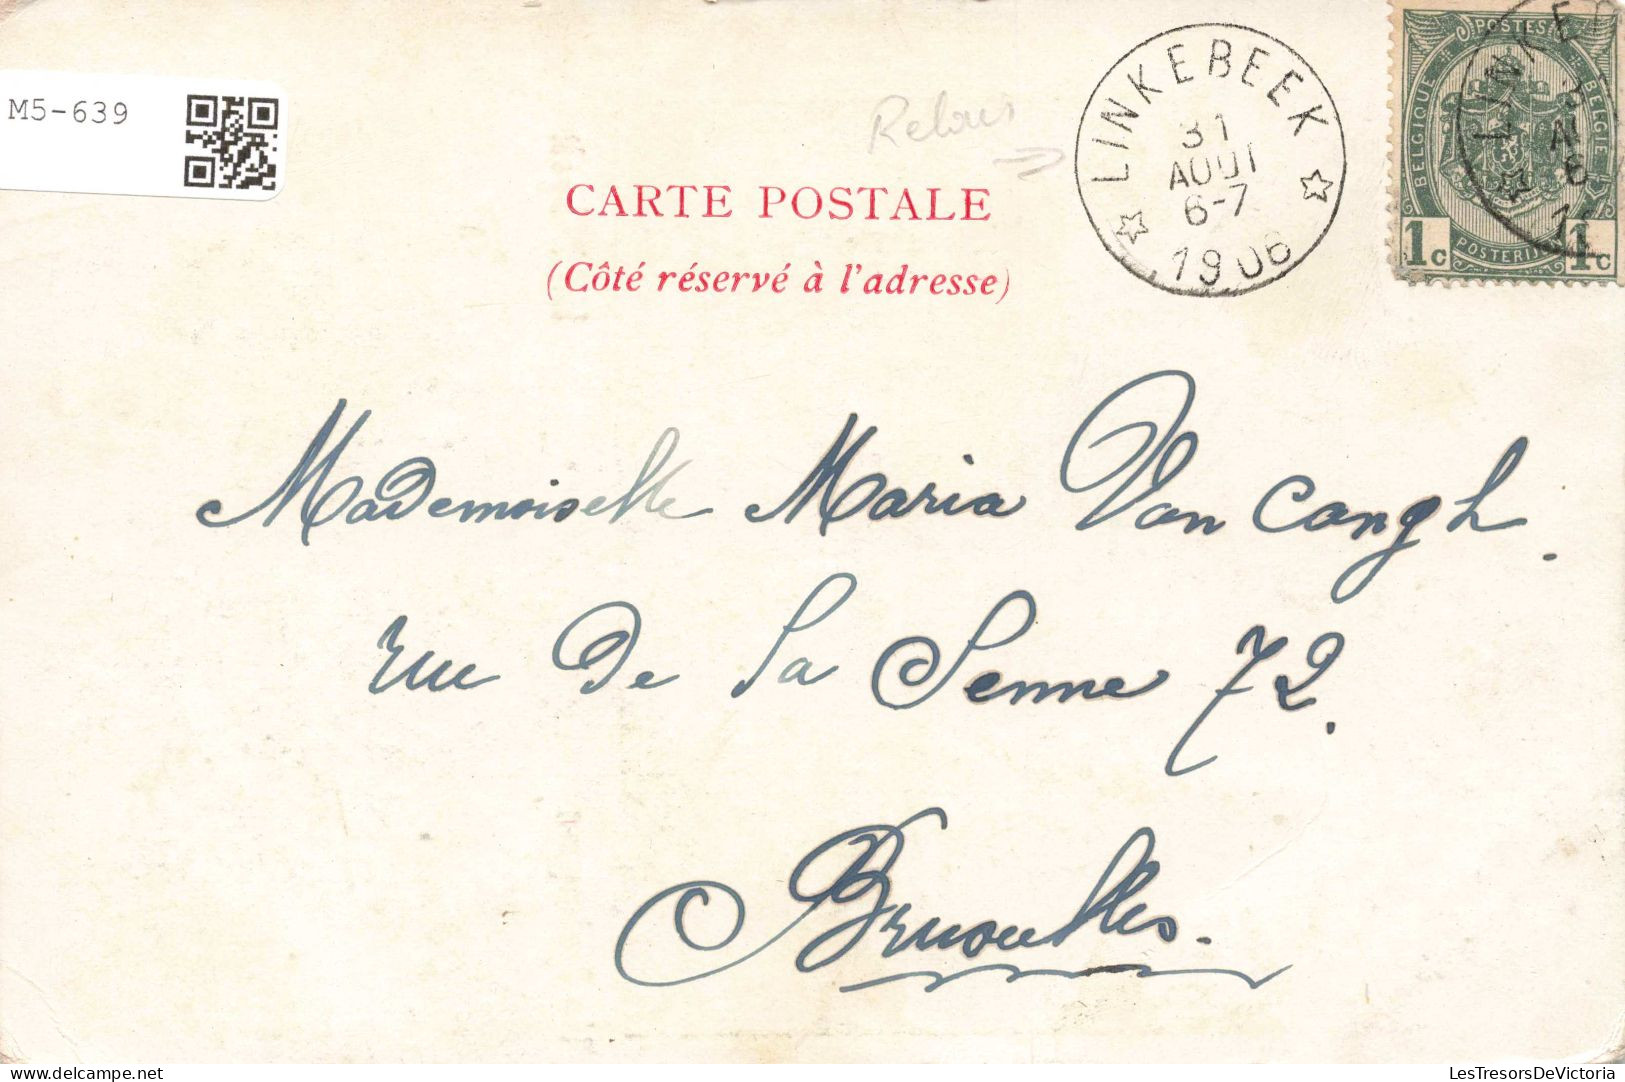 M5-639
Relais
CARTE POSTALE
(Côté réservé à l'adresse)
LINKEBEEK
31
AOUT
6-7
1906
POSTES
BELGIQUE
BELGIE
POSTERIJEN
1c 1c
Mademoiselle Maria Van Cangh.
rue de la Senne 72.
Bruxelles.
delcampe.net
LesTresorsDeVictoria